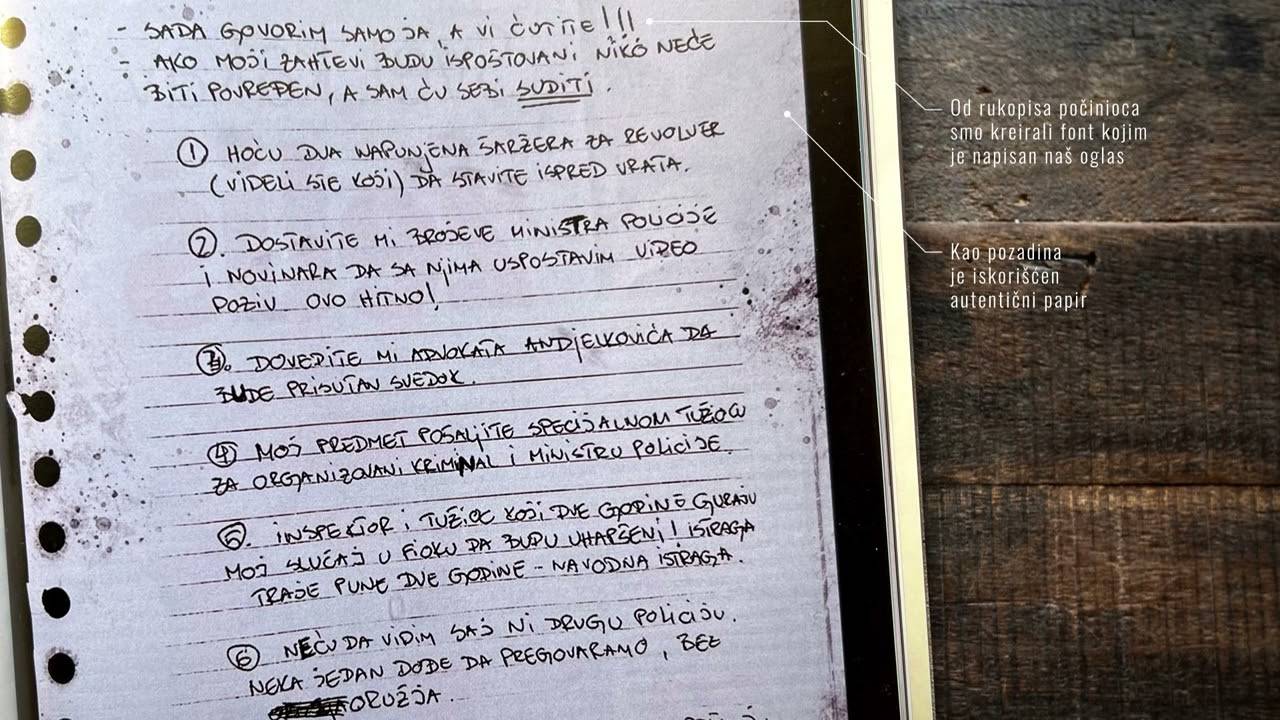 - SADA GOVORIM SAMO JA, A VI ĆUTITE!!!
- AKO MOJI ZAHTEVI BUDU ISPOŠTOVANI NIKO NEĆE
BITI POVREĐEN, A SAM ĆU SEBI SUDITI.
① HOĆU DVA NAPUNJENA ŠARŽERA ZA REVOLVER
(VIDELI STE KOJI) DA STAVITE ISPRED VRATA.
②. DOSTAVITE MI BROJEVE MINISTRA POLICIJE
I NOVINARA DA SA NJIMA USPOSTAVIM VIDEO
POZIV OVO HITNO!
③. DOVEDITE MI ADVOKATA ANDJELKOVIĆA DA
BUDE PRISUTAN SVEDOK.
④ MOJ PREDMET POŠALJITE SPECIJALNOM TUŽIOCU
ZA ORGANIZOVANI KRIMINAL I MINISTRU POLICIJE.
⑤. INSPEKTOR I TUŽIOC KOJI DVE GODINE GURAJU
MOJ SLUČAJ U FIOKU DA BUDU UHAPŠENI! ISTRAGA
TRAJE PUNE DVE GODINE - NAVODNA ISTRAGA.
⑥ NEĆU DA VIDIM SAJ NI DRUGU POLICIJU.
NEKA JEDAN DOĐE DA PREGOVARAMO, BEZ
ORUŽJA.
Od rukopisa počinioca
smo kreirali font kojim
je napisan naš oglas
Kao pozadina
je iskorišćen
autentični papir